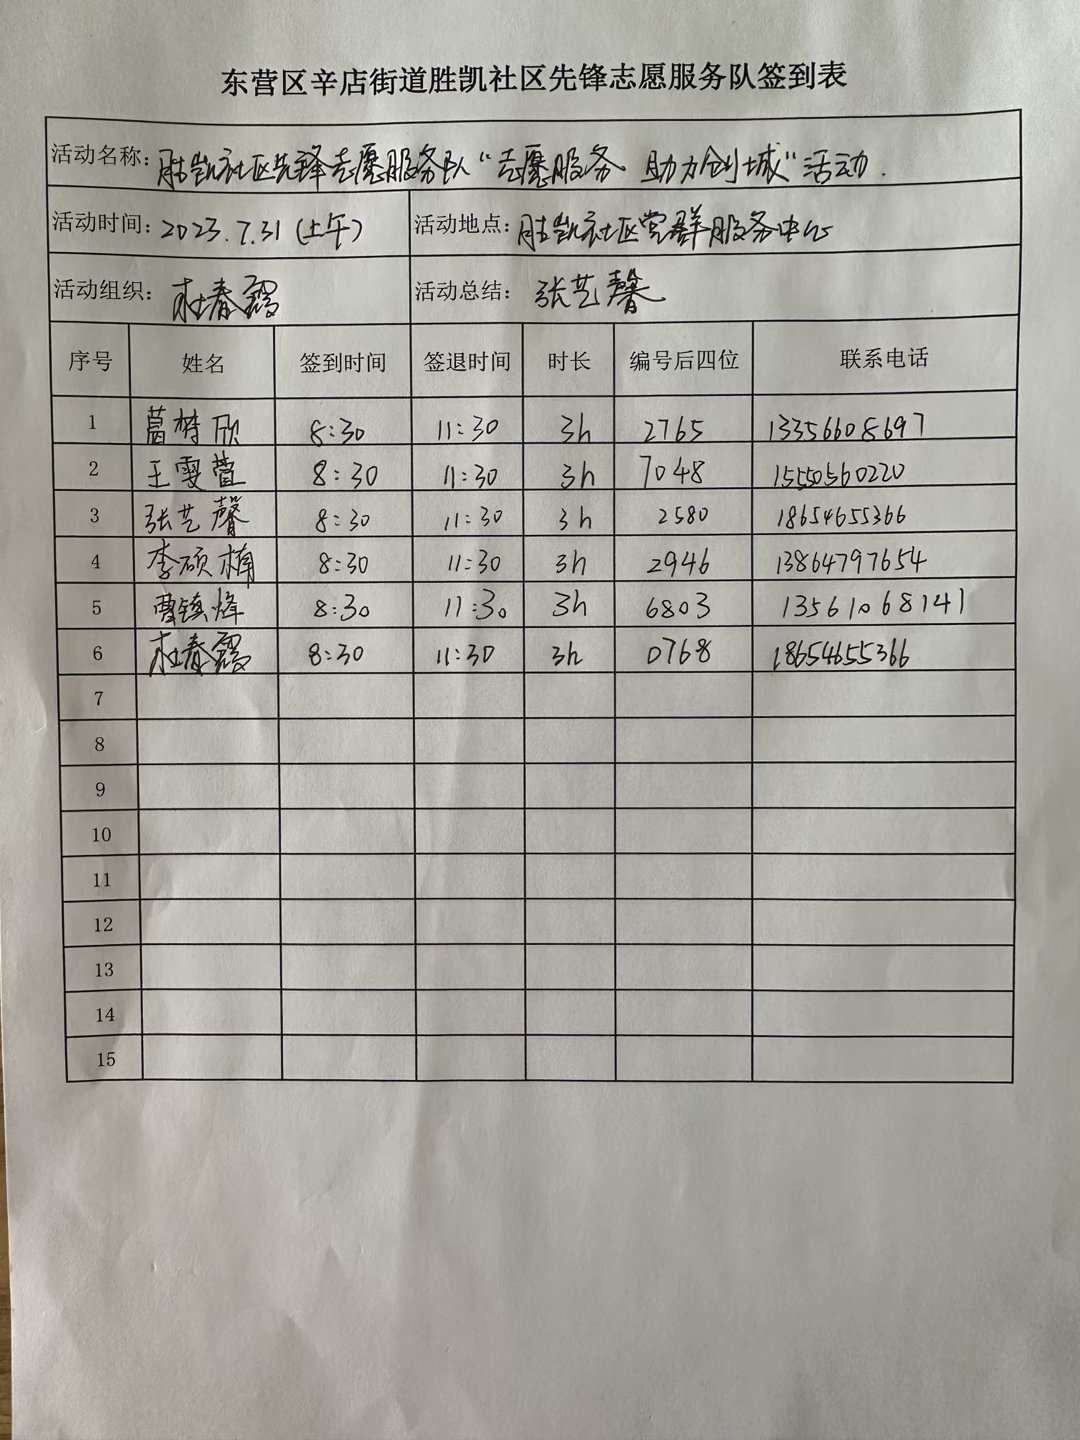 东营区辛店街道胜凯社区先锋志愿服务队签到表
活动名称：胜凯社区先锋志愿服务队“志愿服务 助力创城”活动.
活动时间：2023.7.31 (上午) 活动地点：胜凯社区党群服务中心
活动组织：杜春霞 活动总结：张艺馨
序号 姓名 签到时间 签退时间 时长 编号后四位 联系电话
1 葛树欣 8:30 11:30 3h 2765 13356608697
2 王雯萱 8:30 11:30 3h 7048 15550560220
3 张艺馨 8:30 11:30 3h 2580 18654655366
4 李硕楠 8:30 11:30 3h 2946 13864797654
5 曹镇烽 8:30 11:30 3h 6803 13561068141
6 杜春霞 8:30 11:30 3h 0768 18654655366
7
8
9
10
11
12
13
14
15